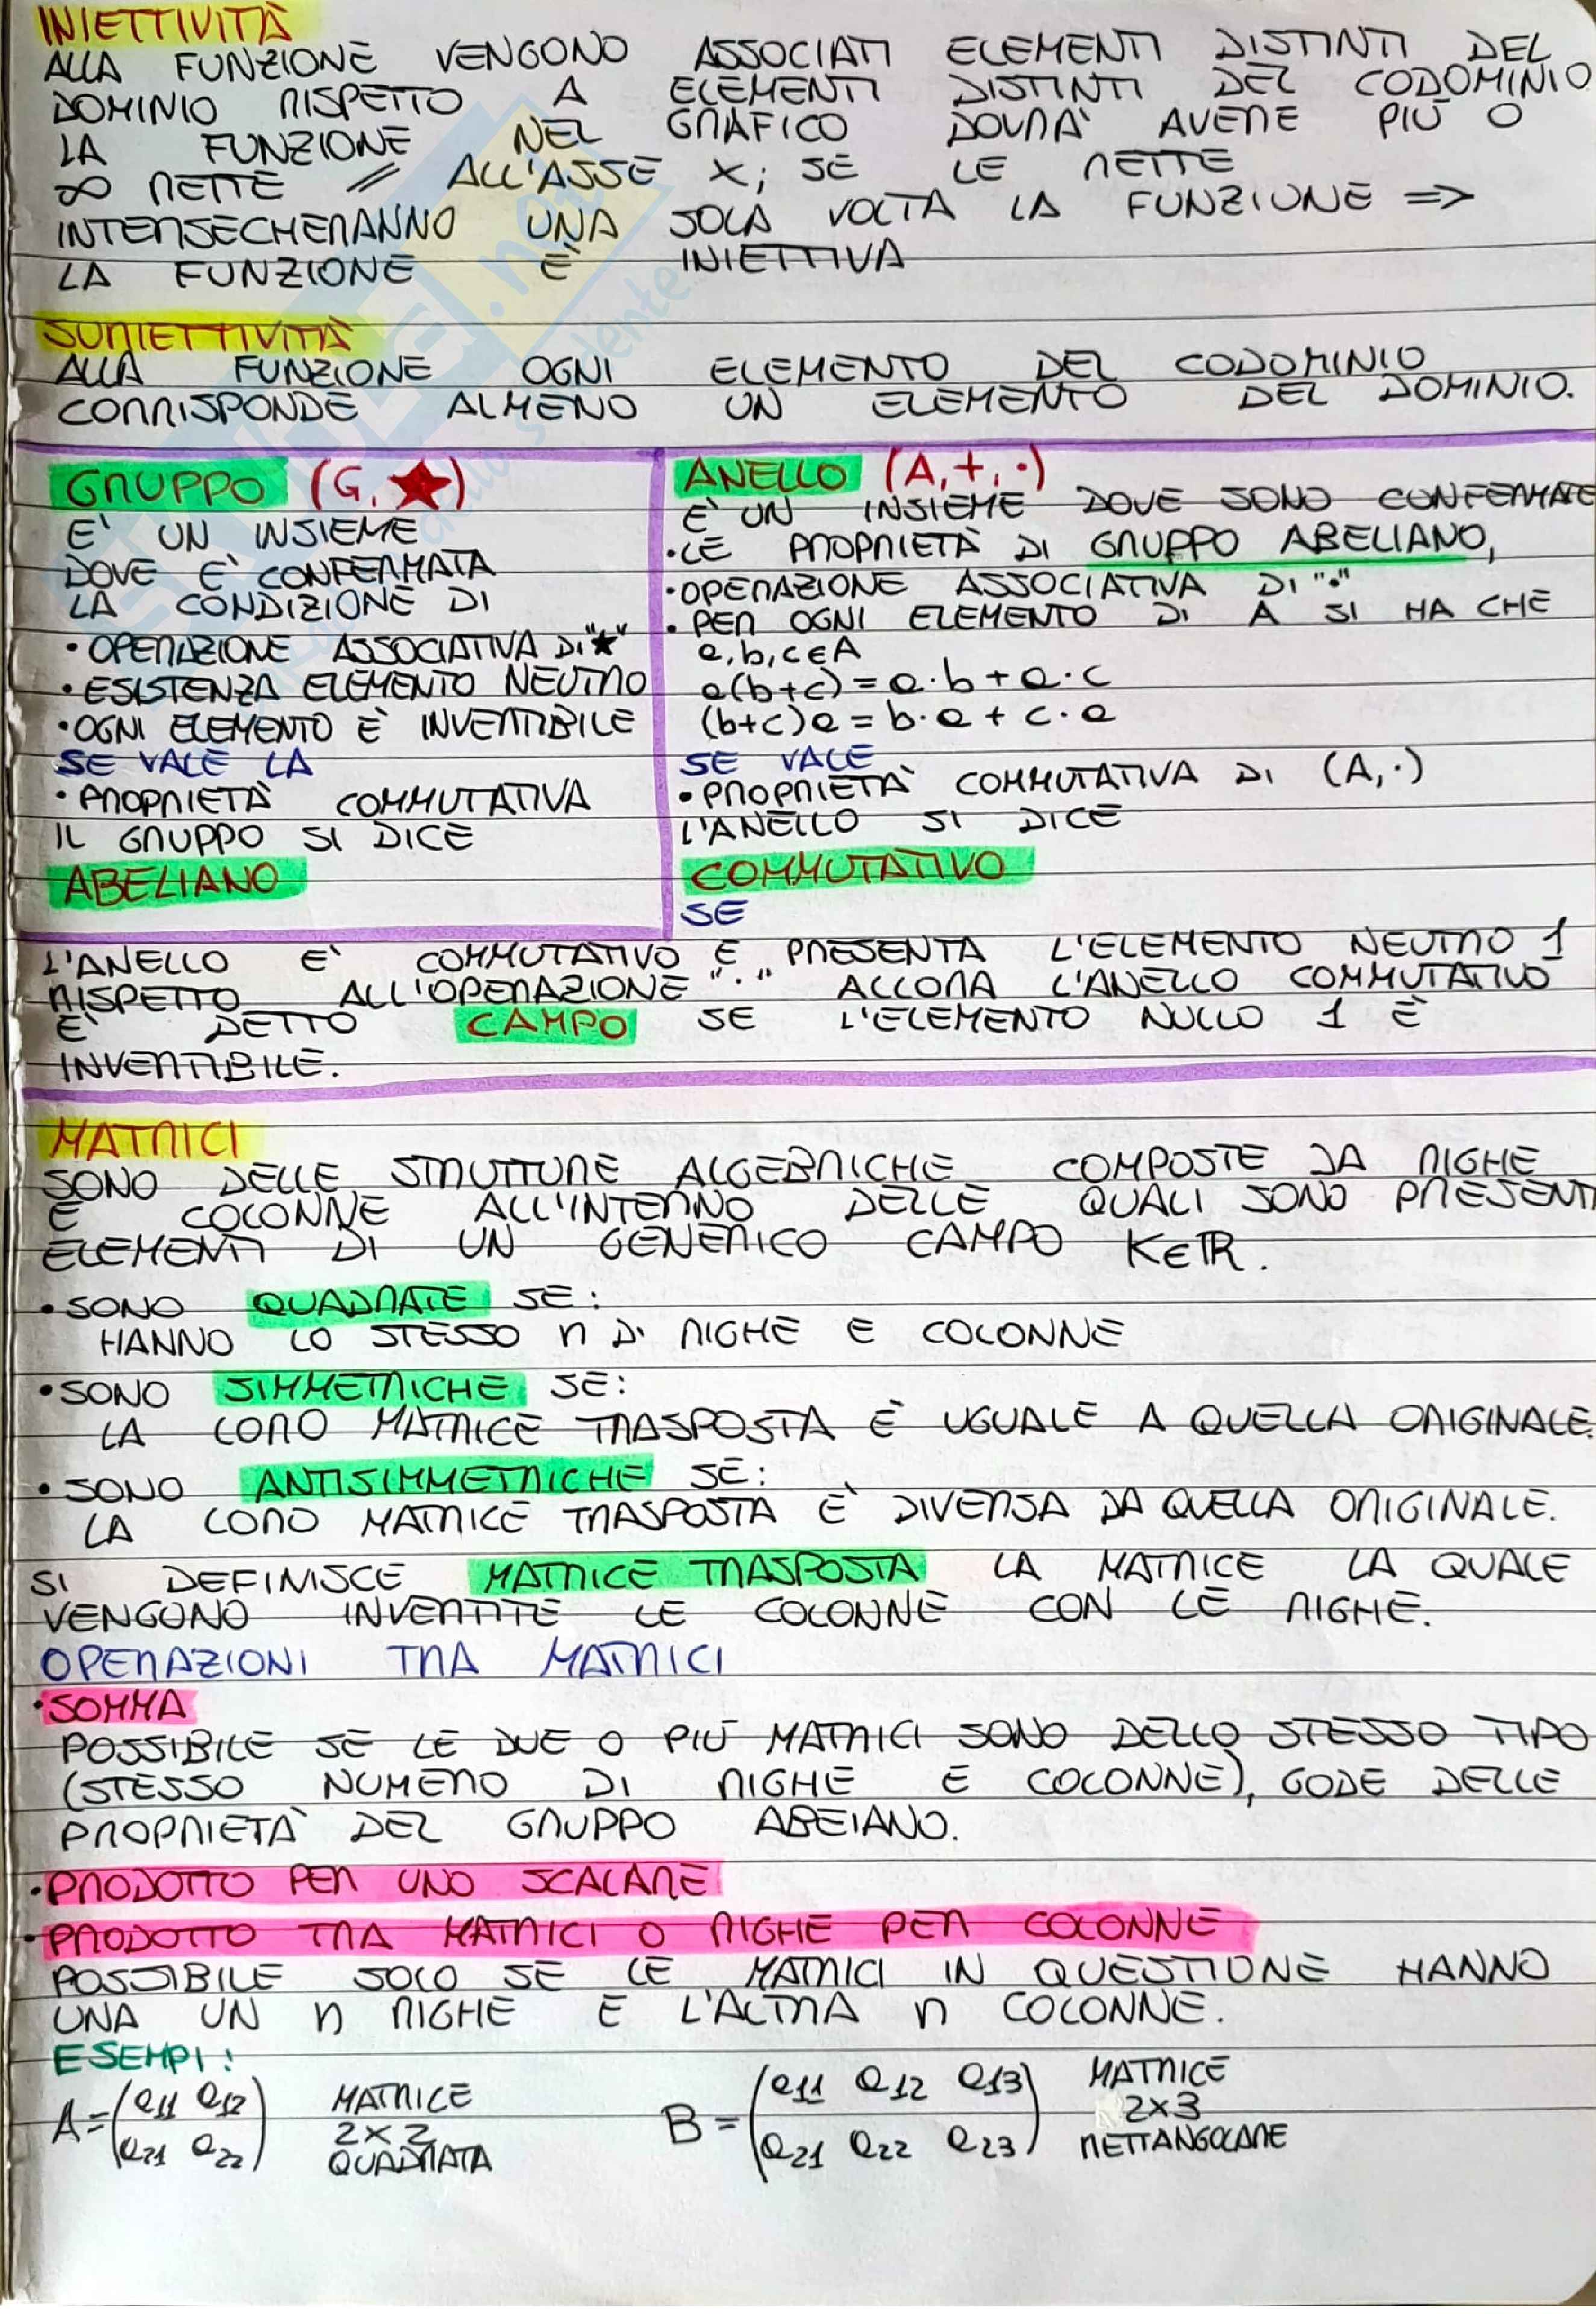 INIETTIVITÀ
ALLA FUNZIONE VENGONO ASSOCIATI ELEMENTI DISTINTI DEL
DOMINIO RISPETTO A ELEMENTI DISTINTI DEL CODOMINIO.
LA FUNZIONE NEL GRAFICO DOVRA' AVERE PIÙ O
∞ RETTE // ALL'ASSE X; SE LE RETTE
INTERSECHERANNO UNA SOLA VOLTA LA FUNZIONE =>
LA FUNZIONE È INIETTIVA
SURIETTIVITÀ
ALLA FUNZIONE OGNI ELEMENTO DEL CODOMINIO
CORRISPONDE ALMENO UN ELEMENTO DEL DOMINIO.
GRUPPO (G, ★)
E' UN INSIEME
DOVE E' CONFERMATA
LA CONDIZIONE DI
• OPERAZIONE ASSOCIATIVA DI "★"
• ESISTENZA ELEMENTO NEUTRO
• OGNI ELEMENTO È INVERTIBILE
SE VALE LA
• PROPRIETÀ COMMUTATIVA
IL GRUPPO SI DICE
ABELIANO
ANELLO (A,+,·)
E' UN INSIEME DOVE SONO CONFERMATE
• LE PROPRIETÀ DI GRUPPO ABELIANO,
• OPERAZIONE ASSOCIATIVA DI "·"
• PER OGNI ELEMENTO DI A SI HA CHE
a,b,c∈A
a(b+c)=a·b+a·c
(b+c)a=b·a+c·a
SE VALE
• PROPRIETÀ COMMUTATIVA DI (A,·)
L'ANELLO SI DICE
COMMUTATIVO
SE
L'ANELLO E' COMMUTATIVO E PRESENTA L'ELEMENTO NEUTRO 1
RISPETTO ALL'OPERAZIONE "·" ALLORA L'ANELLO COMMUTATIVO
E' DETTO CAMPO SE L'ELEMENTO NULLO 1 È
INVERTIBILE.
MATRICI
SONO DELLE STRUTTURE ALGEBRICHE COMPOSTE DA RIGHE
E COLONNE ALL'INTERNO DELLE QUALI SONO PRESENTI
ELEMENTI DI UN GENERICO CAMPO K∈ℝ.
• SONO QUADRATE SE:
HANNO LO STESSO n DI RIGHE E COLONNE
• SONO SIMMETRICHE SE:
LA LORO MATRICE TRASPOSTA È UGUALE A QUELLA ORIGINALE.
• SONO ANTISIMMETRICHE SE:
LA LORO MATRICE TRASPOSTA È DIVERSA DA QUELLA ORIGINALE.
SI DEFINISCE MATRICE TRASPOSTA LA MATRICE LA QUALE
VENGONO INVERTITE LE COLONNE CON LE RIGHE.
OPERAZIONI TRA MATRICI
• SOMMA
POSSIBILE SE LE DUE O PIÙ MATRICI SONO DELLO STESSO TIPO
(STESSO NUMERO DI RIGHE E COLONNE), GODE DELLE
PROPRIETÀ DEL GRUPPO ABEIANO.
• PRODOTTO PER UNO SCALARE
• PRODOTTO TRA MATRICI O RIGHE PER COLONNE
POSSIBILE SOLO SE LE MATRICI IN QUESTIONE HANNO
UNA UN n RIGHE E L'ALTRA n COLONNE.
ESEMPI:
A=(a11 a12
a21 a22) MATRICE
2x2
QUADRATA
B=(a11 a12 a13
a21 a22 a23) MATRICE
2x3
RETTANGOLARE